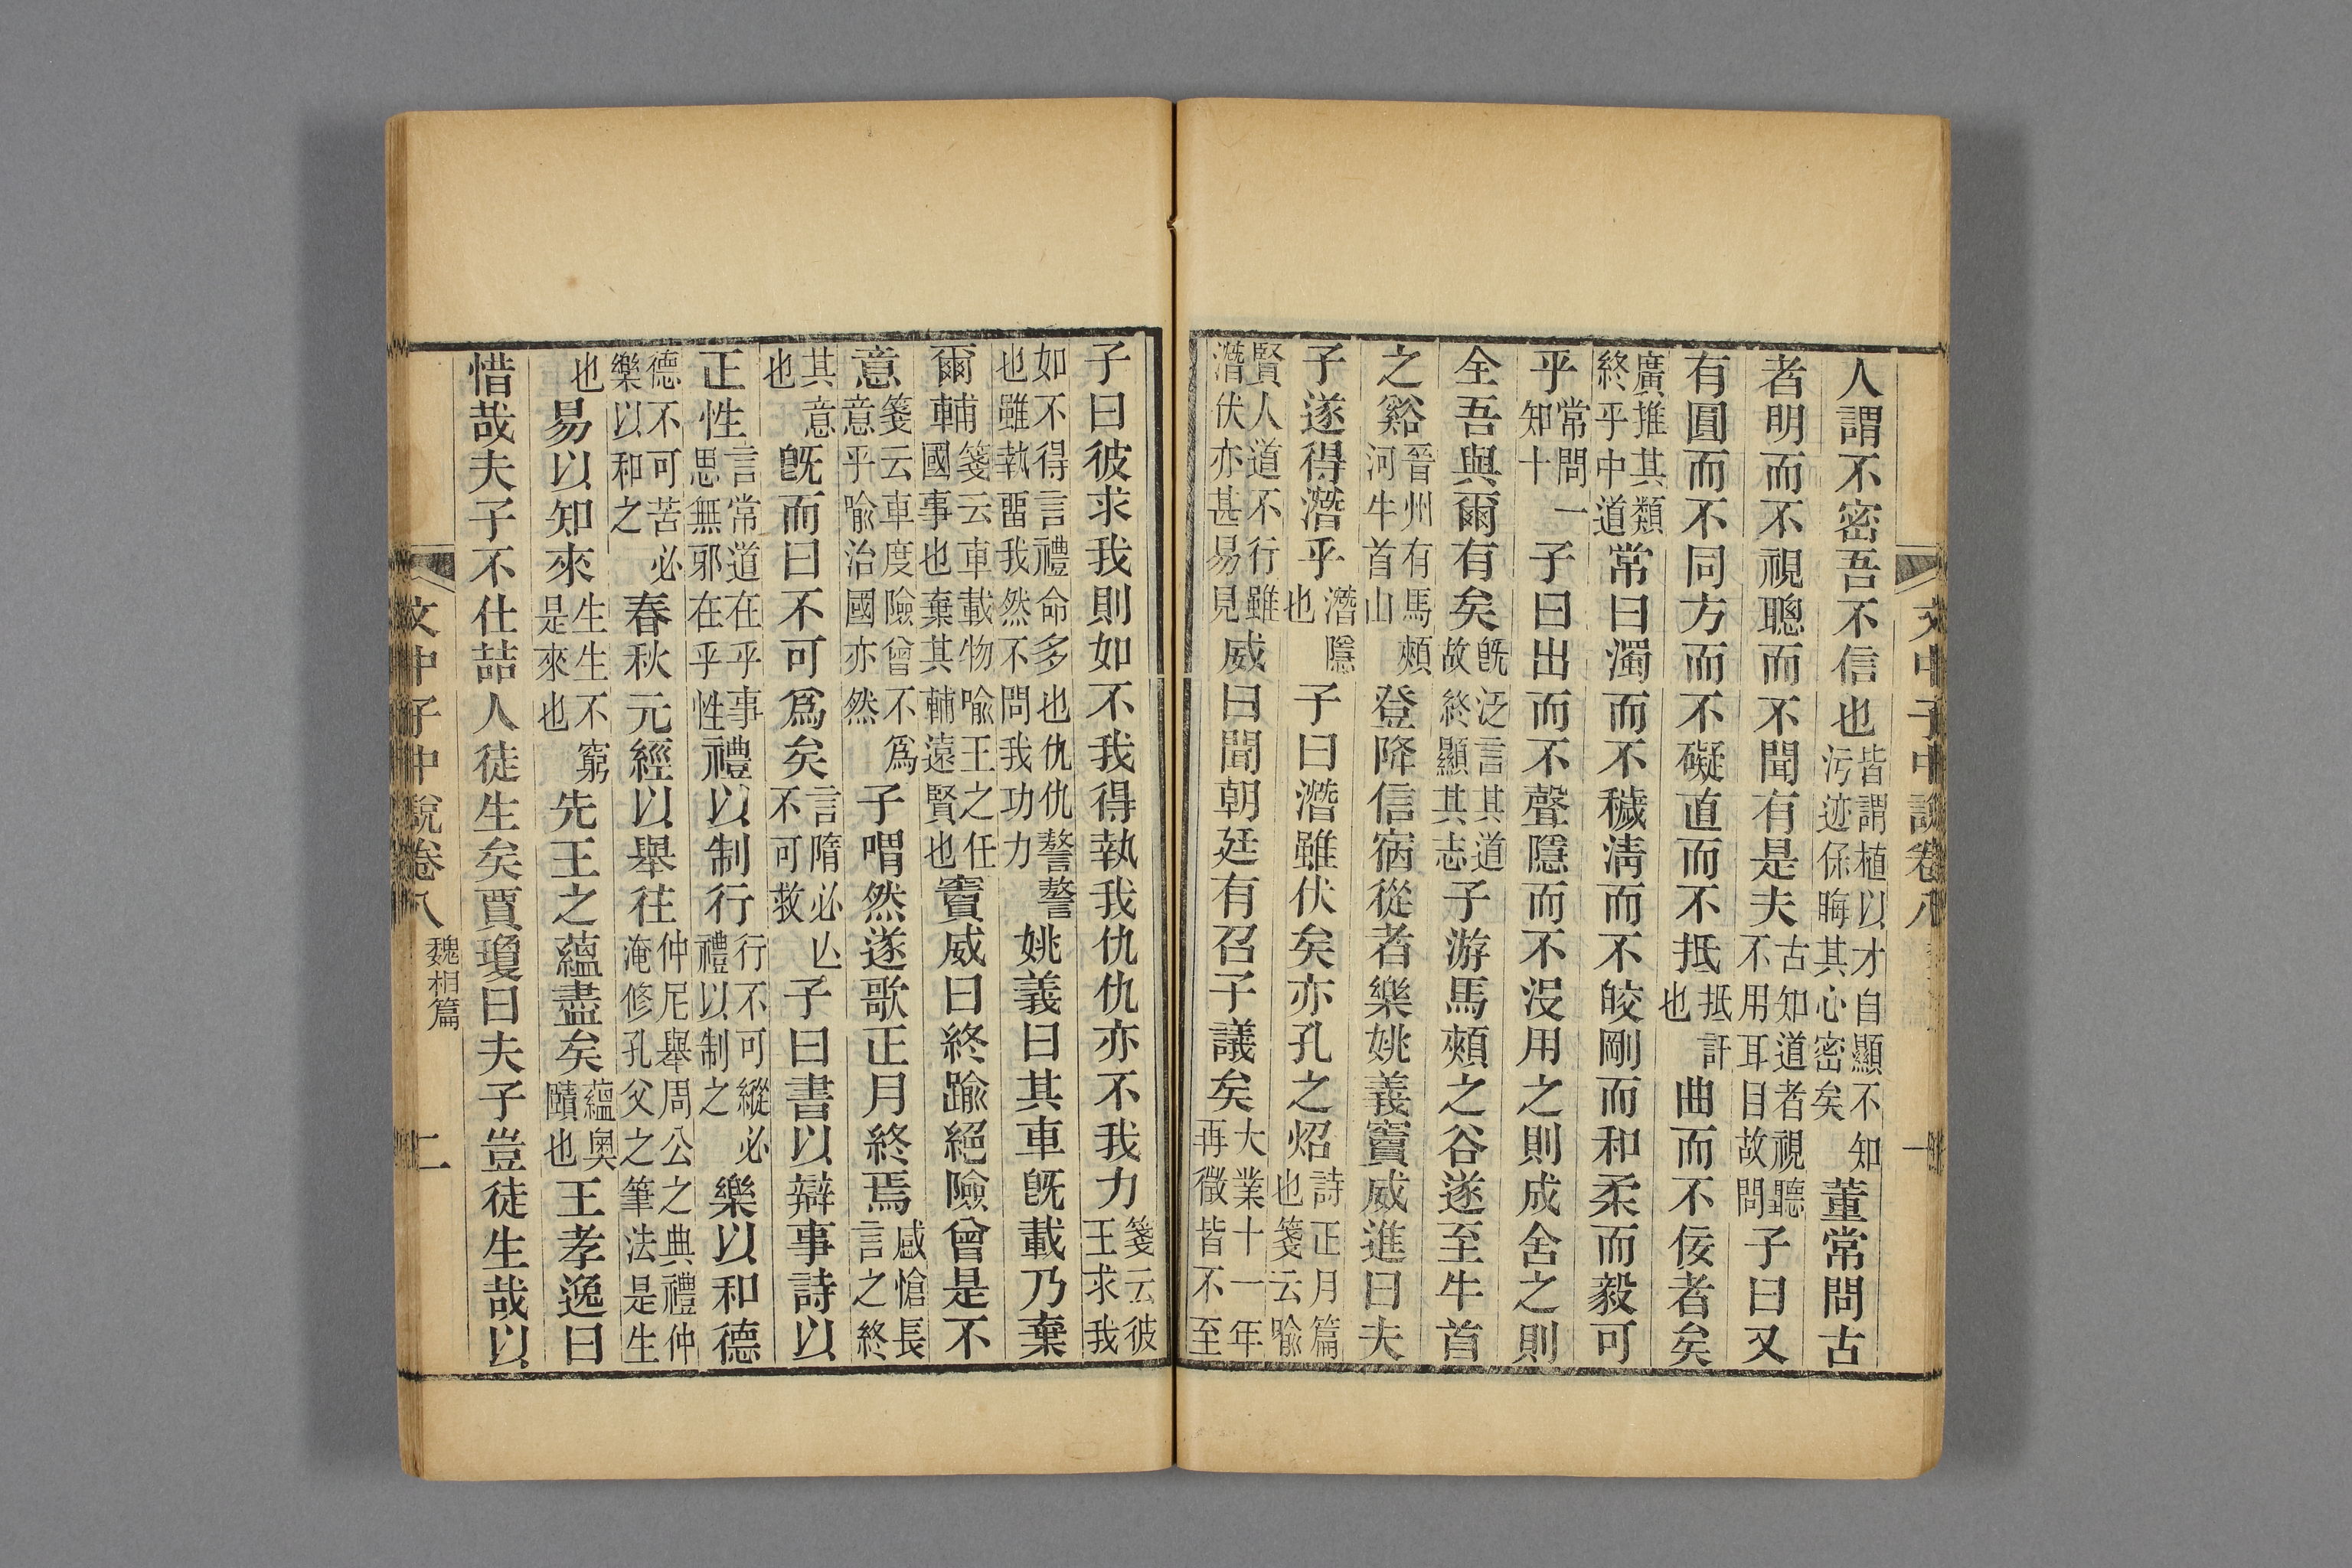 文中子中說卷八 一
人謂不密吾不信也皆謂植以才自顯不知污迹保晦其心密矣董常問古
者明而不視聰而不聞有是夫古知道者視聽不用耳目故問子曰又
有圓而不同方而不礙直而不抵抵訐也曲而不佞者矣
廣推其類終乎中道常曰濁而不穢清而不皎剛而和柔而毅可
乎常問一知十子曰出而不聲隱而不沒用之則成舍之則
全吾與爾有矣旣泛言其道故終顯其志子游馬頰之谷遂至牛首
之谿晉州有馬頰河牛首山登降信宿從者樂姚義竇威進曰夫
子遂得潛乎潛隱也子曰潛雖伏矣亦孔之炤詩正月篇也箋云喻
賢人道不行雖潛伏亦甚易見威曰聞朝廷有召子議矣大業十一年再徵皆不至
子曰彼求我則如不我得執我仇仇亦不我力箋云彼王求我
如不得言禮命多也仇仇謷謷也雖執畱我然不問我功力姚義曰其車旣載乃棄
爾輔箋云車載物喻王之任國事也棄其輔遠賢也竇威曰終踰絕險曾是不
意箋云車度險曾不爲意乎喻治國亦然子喟然遂歌正月終焉感愴長言之終
其意也旣而曰不可爲矣言隋必亾不可救子曰書以辯事詩以
正性言常道在乎事思無邪在乎性禮以制行行不可縱必禮以制之樂以和德
德不可苦必樂以和之春秋元經以舉往仲尼舉周公之典禮仲淹修孔父之筆法是生
也易以知來生生不窮是來也先王之蘊盡矣蘊奧賾也王孝逸曰
惜哉夫子不仕喆人徒生矣賈瓊曰夫子豈徒生哉以
文中子中說卷八 魏相篇 二